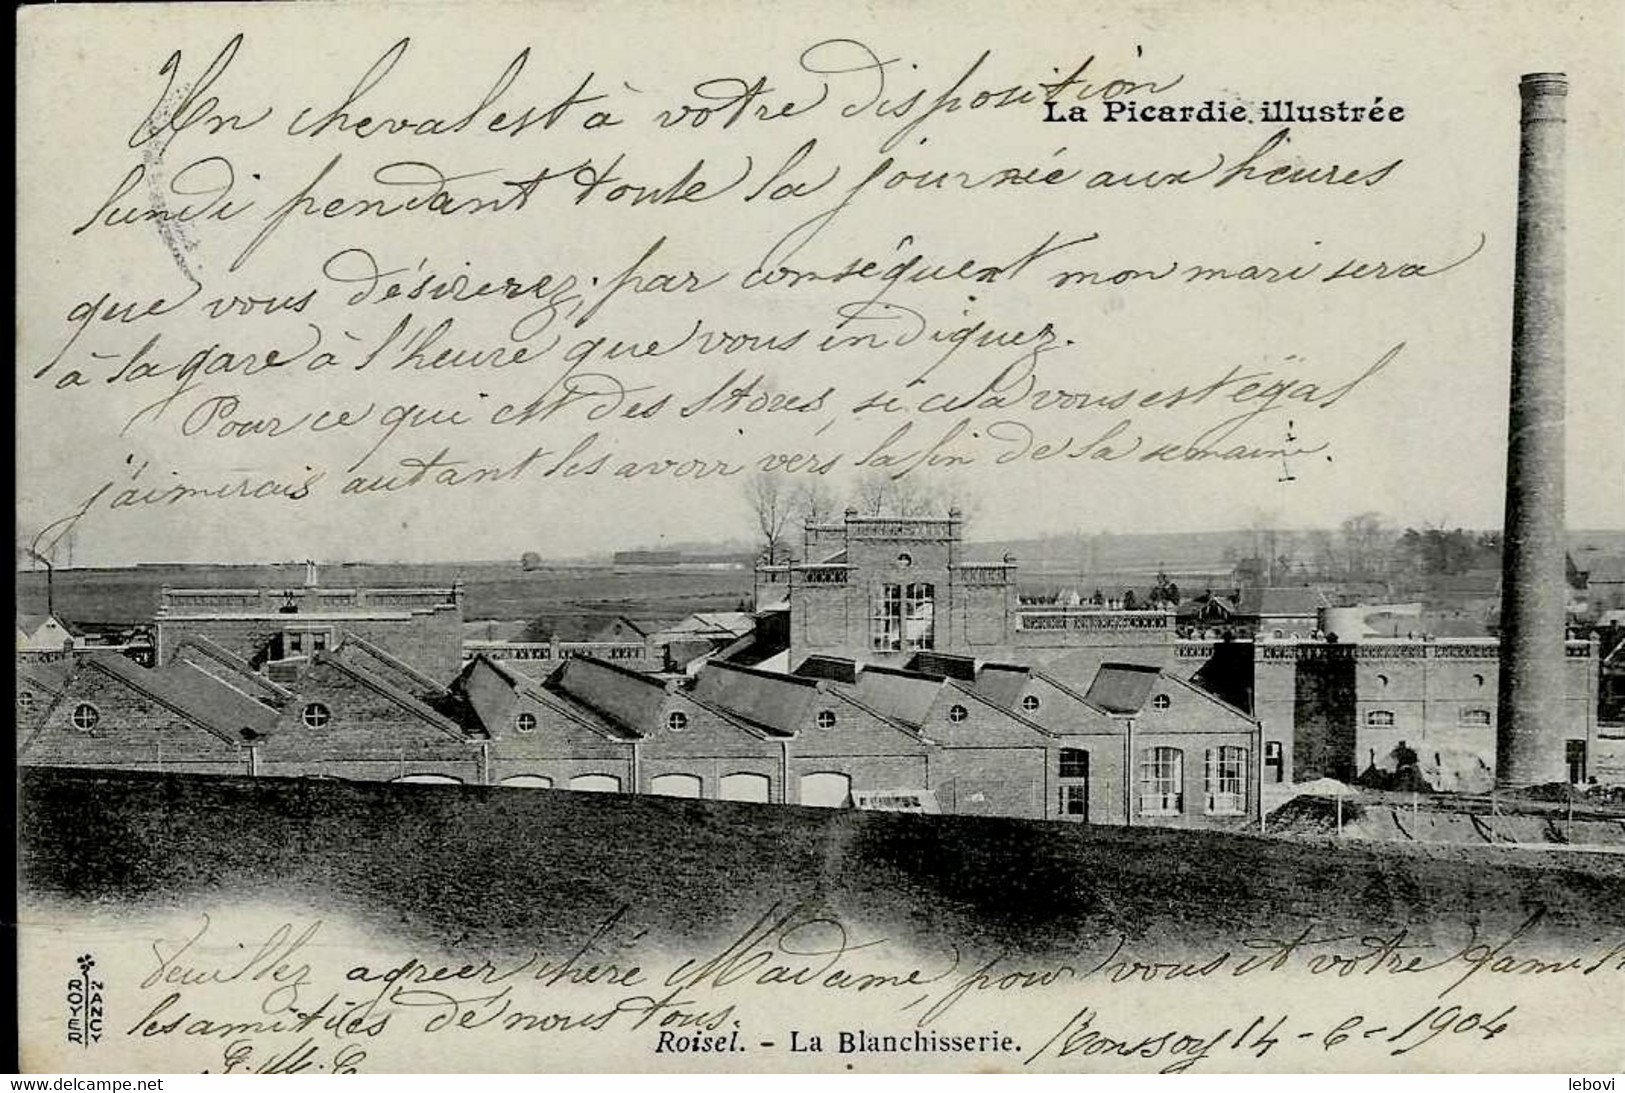 Un cheval est à votre disposition
La Picardie illustrée
lundi pendant toute la journée aux heures
que vous désirerez; par conséquent mon mari sera
à la gare à l'heure que vous indiquez.
Pour ce qui est des stores, si cela vous est égal
j'aimerais autant les avoir vers la fin de la semaine.
Veuillez agréer chère Madame, pour vous et votre famil
les amitiés de nous tous.
ROYER NANCY
Roisel. - La Blanchisserie.
Ronssoy 14-6-1904
lebovi